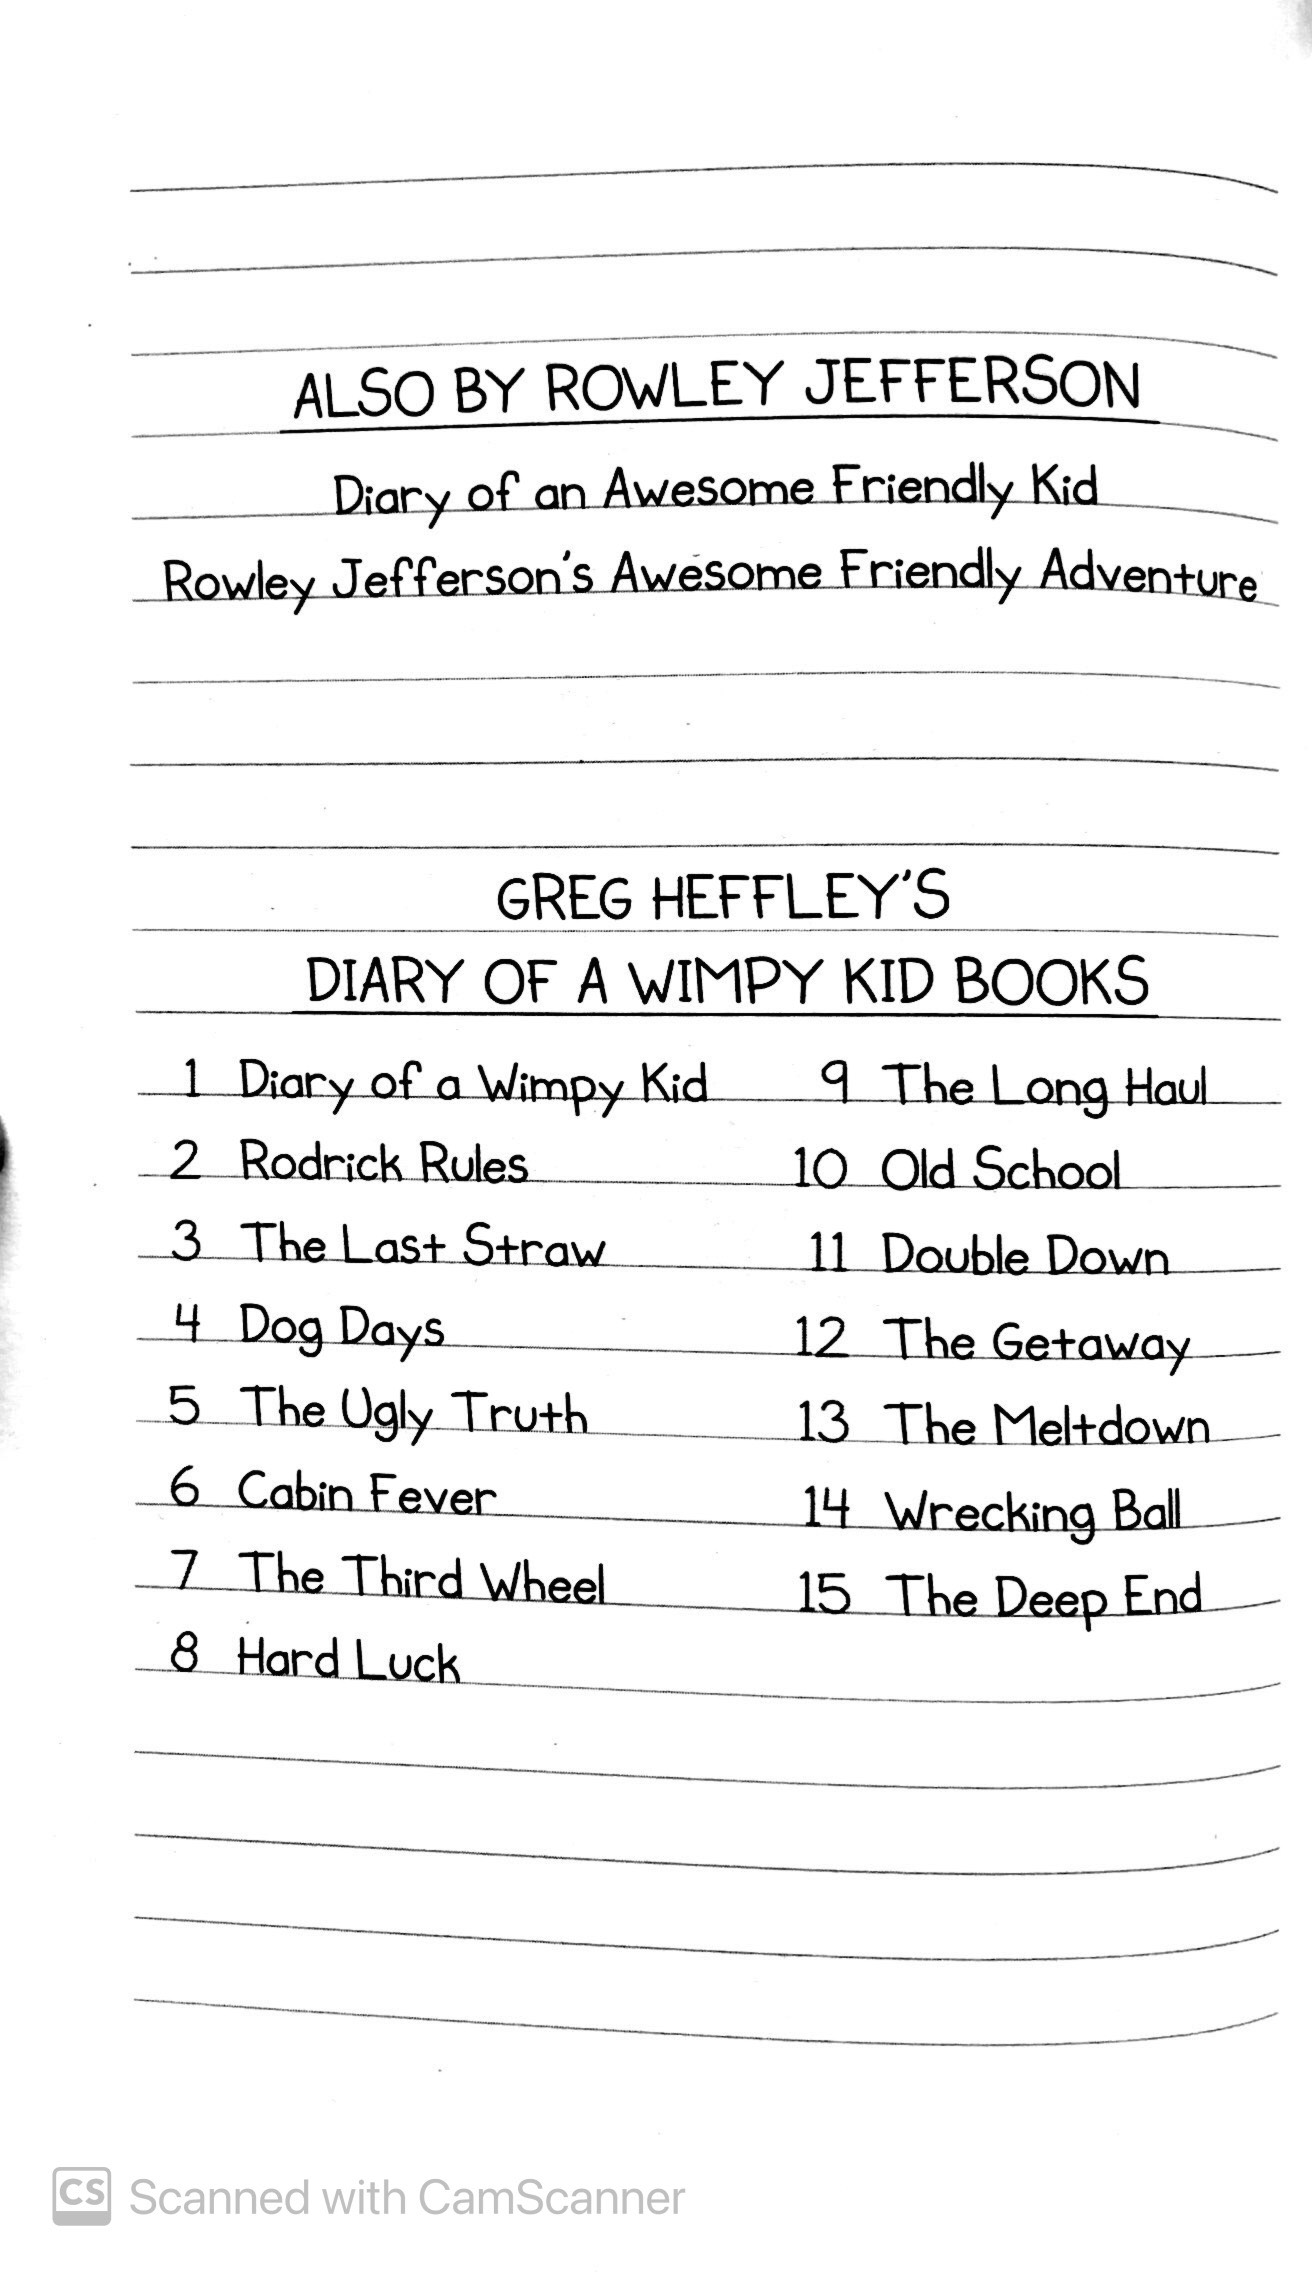 ALSO BY ROWLEY JEFFERSON
Diary of an Awesome Friendly Kid
Rowley Jefferson's Awesome Friendly Adventure
GREG HEFFLEY'S
DIARY OF A WIMPY KID BOOKS
1 Diary of a Wimpy Kid
2 Rodrick Rules
3 The Last Straw
4 Dog Days
5 The Ugly Truth
6 Cabin Fever
7 The Third Wheel
8 Hard Luck
9 The Long Haul
10 Old School
11 Double Down
12 The Getaway
13 The Meltdown
14 Wrecking Ball
15 The Deep End
CS Scanned with CamScanner